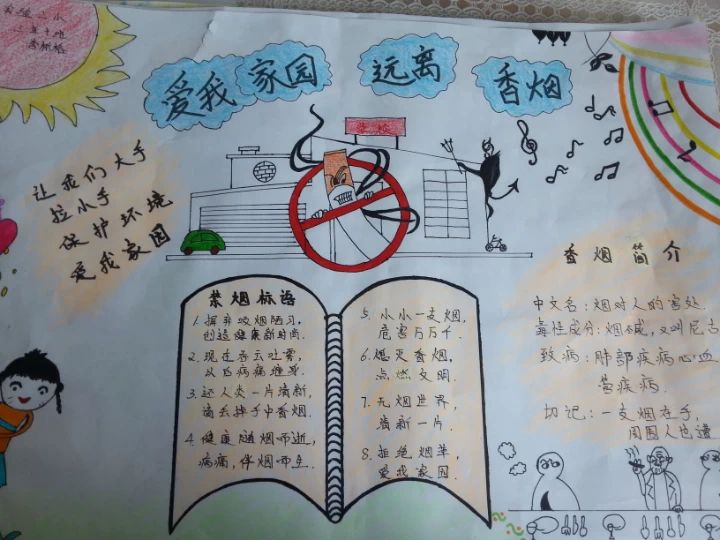 爱我 家园 远离 香烟
让我们大手
拉小手
保护环境
爱我家园
禁烟标语
1. 摒弃吸烟陋习,
创造健康新时尚.
2. 现在吞云吐雾,
以后病痛难享.
3. 还人类一片清新,
请去掉手中香烟.
4. 健康随烟而逝,
病痛,伴烟而生.
5. 小小一支烟,
危害万万千.
6. 熄灭香烟,
点燃文明.
7. 无烟世界,
清新一片.
8. 拒绝烟草,
爱我家园.
香烟简介
中文名:烟对人的害处
毒性成分:烟碱,又叫尼古
致病:肺部疾病心血
管疾病.
切记:一支烟在手,
周围人也遭